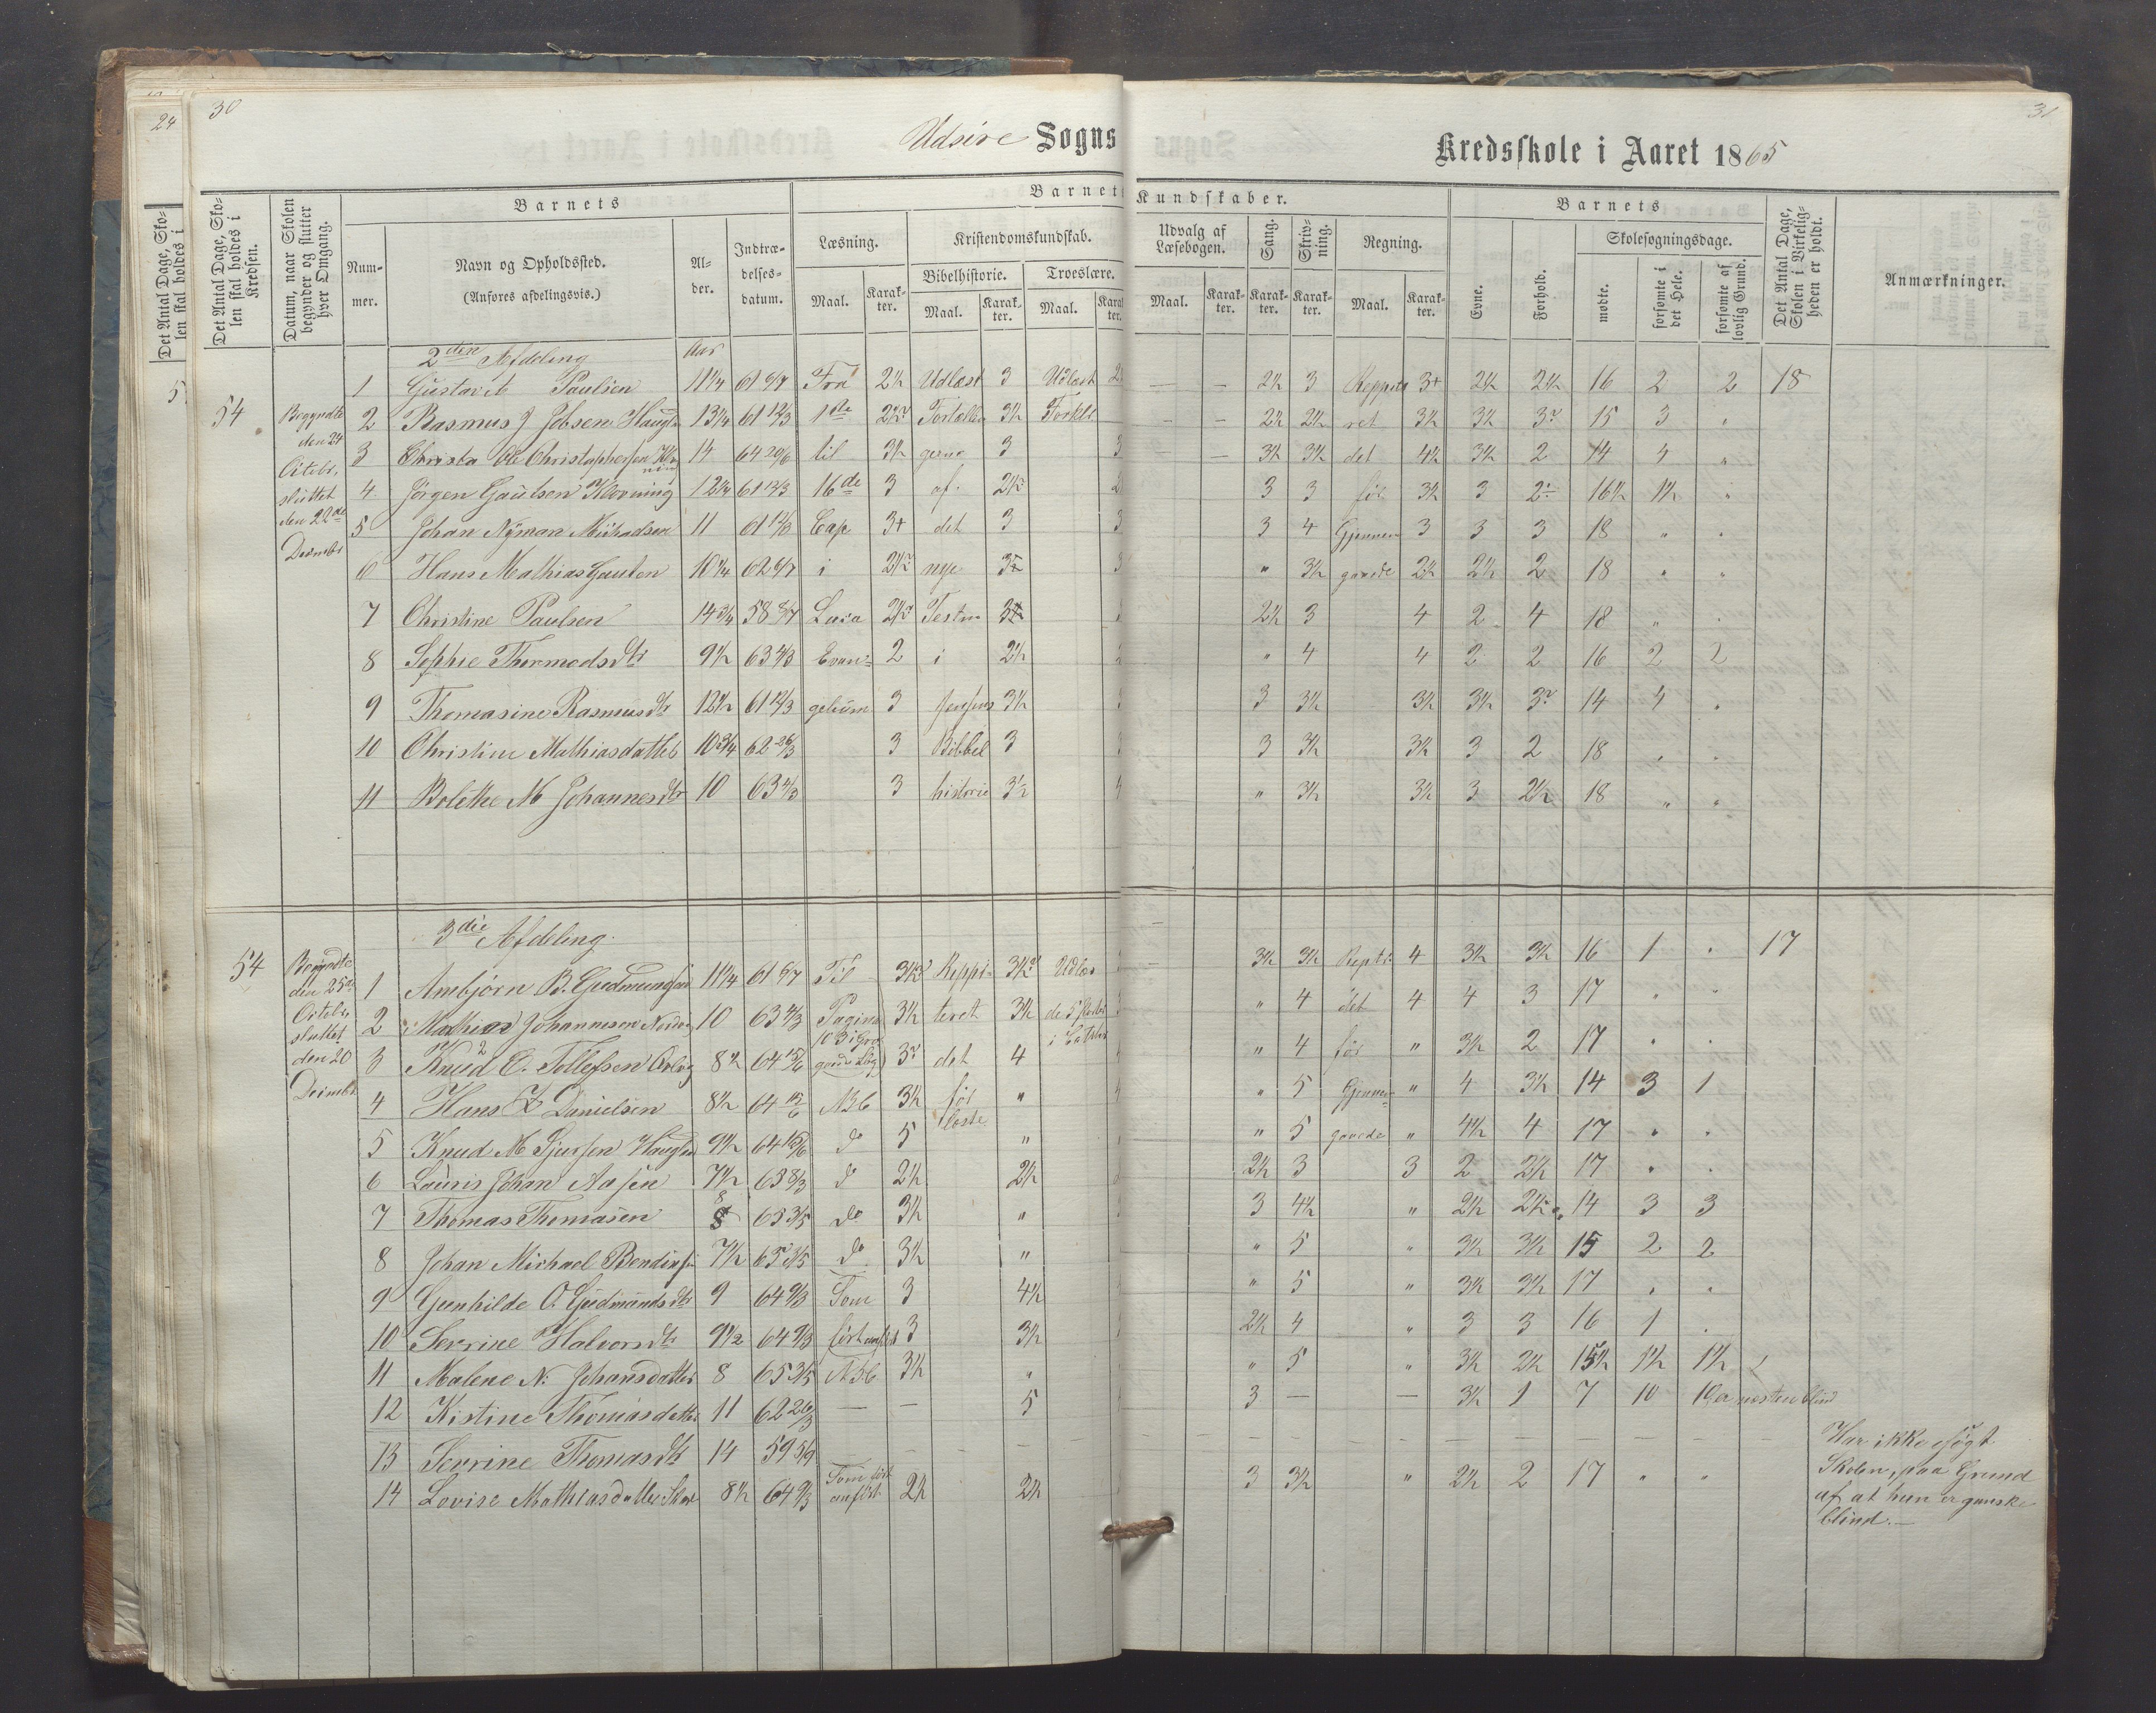 24
30
31
Udsire Sogns Kredsskole i Aaret 1865
Det Antal Dage, Skolen skal holdes i
Det Antal Dage, Skolen skal holdes i Kredsen.
Datum, naar Skolen begynder og slutter hver Omgang.
Barnets
Nummer.
Navn og Opholdssted.
(Anføres afdelingsvis.)
Alder.
Indtrædelsesdatum.
Barnets Kundskaber.
Læsning.
Kristendomskundskab.
Bibelhistorie.
Troeslære.
Udvalg af Læsebogen.
Sang.
Skrivning.
Regning.
Maal.
Karakter.
Maal.
Karakter.
Maal.
Karakter.
Maal.
Karakter.
Karakter.
Karakter.
Maal.
Karakter.
Barnets
Evne.
Forhold.
Skolesøgningsdage.
mødte.
forsømte i det Hele.
forsømte af lovlig Grund.
Det Antal Dage, Skolen i Virkeligheden er holdt.
Anmærkninger.
2den Afdeling Aar
54 Begyndte den 24 Octobr, sluttet den 22de Decembr
1 Gustav A Paulsen 11 1/4 61 6/7 Fra 2½ Udlæst 3 Udlæst — — 2½ 3 Reppete 3+ 2½ 2½ 16 2 2 18
2 Rasmus J Jobsen Haugl 13 1/4 61 12/3 1ste Fortællin 3½ Forkl — — 2½ 2½ ret 3½ 3½ 3 15 3 "
3 Ole Christophersen 14 64 20/6 til 3½ gerne 3 3 — — 3½ 3½ det 4½ 3½ 2 14 4 "
4 Jørgen Gaulsen Klovning 12 1/4 61 12/3 16de 3 af 2½ 3 3 før 3½ 3 2 16½ 1½ "
5 Johan Nyman Michadsen 11 61 12/3 Cap 3+ det 3 3 3 4 Gjennem 3 3 3 18 " "
6 Hans Mathias Gautsn 10 1/4 62 6/7 i nye 3 " 3½ gaaede 2½ 2½ 2 18 " "
7 Christine Paulsen 14 3/4 58 8/7 Luca Testm 2½ 3 4 2 4 18 " "
8 Sophie Thormodsdtr 9½ 63 4/3 Evan= 2 i 2½ " 4 4 2 2 16 2 2
9 Thomasine Rasmusdtr 12½ 61 12/3 gelium 3 3½ 3 3½ 3½ 3½ 3 14 4 "
10 Christine Mathiasdatter 10 3/4 62 26/3 3 Bibbel 3 3 3½ 3½ 3 2 18 " "
11 Bolette M Johannesdtr 10 63 4/3 3 historie 3½ 4 " 3½ 3½ 3 2½ 18 " "
3die Afdeling.
54 Begyndte den 25de Octobr sluttet den 20 Decembr
1 Ambjørn B. Gudmundsen 11 1/4 61 6/7 Til Reppe= Udlæs 3½ 3½ Repti 4 3½ 3½ 16 1 " 17
2 Mathias Johannesen 10 63 4/3 Pagina 3½ teret 3½ de 5 Parter " 4 det 4 4 3 17 " "
3 Knud O. Tollefsen 8½ 64 15/6 3 det 4 " 4 før " 3½ 2 17 " "
4 Hans Z Danielsen 8½ 64 15/6 Abc 3½ før læste " 4 " 5 Gjennem= " 4 3½ 14 3 1
5 Knud M Sjursen Haugland 9½ 64 15/6 do 5 " " 5 gaaede " 4½ 4 17 " "
6 Lauris Johan Aasen 7½ 63 8/3 d 2½ 2½ 2½ 3 3 2 2½ 17 " "
7 Thomas Thomasen 8 65 3/5 do 3½ " 3 4½ " 2½ 2½ 14 3 3
8 Johan Michael Bendixsen 7½ 65 3/5 do 3½ " " 5 " 3½ 3½ 15 2 2
9 Gunhilde O. Gudmundsdtr 9 64 9/3 Som 3 4½ " 5 " 3½ 3½ 17 " "
10 Serrine Halvorsdtr 9½ 64 9/3 først anført 3 3½ 2½ 4 " 3 3 16 1
11 Malene N. Johansdatter 8 65 3/5 Abc 3½ " " 5 " 3½ 2½ 15½ 1½ 1½
12 Kistine Thomasdatter 11 62 26/3 — — 5 3 — — 3½ 1 7 10 10 er næsten blind
13 Serrine Thomasdtr 14 59 5/9 — — — — Har ikke søgt Skolen, paa Grund af at hun er ganske blind.—
14 Lovise Mathiasdatter 8½ 64 9/3 Som først anført 2½ 2½ 3 3½ " 2½ 2 17 " "